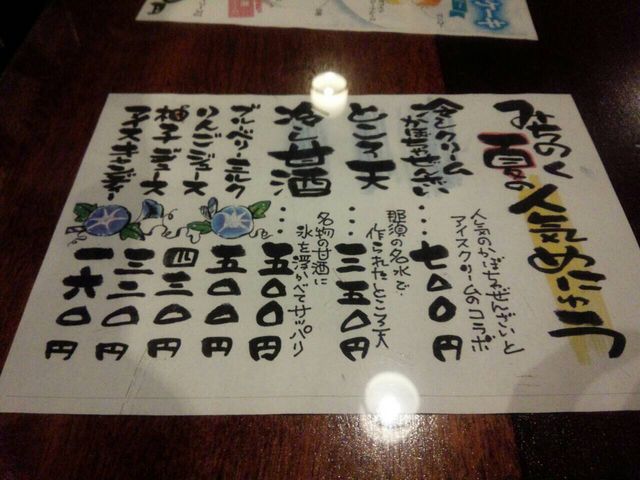 みちのく
夏の人気めにゅう
冷しクリーム
かぼちゃぜんざい…七〇〇円
人気のかぼちゃぜんざいと
アイスクリームのコラボ
ところ天…三五〇円
那須の名水で
作られたところ天
冷し甘酒…五〇〇円
名物の甘酒に
氷を浮かべてサッパリ
ブルーベリーミルク 五〇〇円
りんごジュース 四三〇円
柚子ジュース 三二〇円
アイスキャンデー 一六〇円